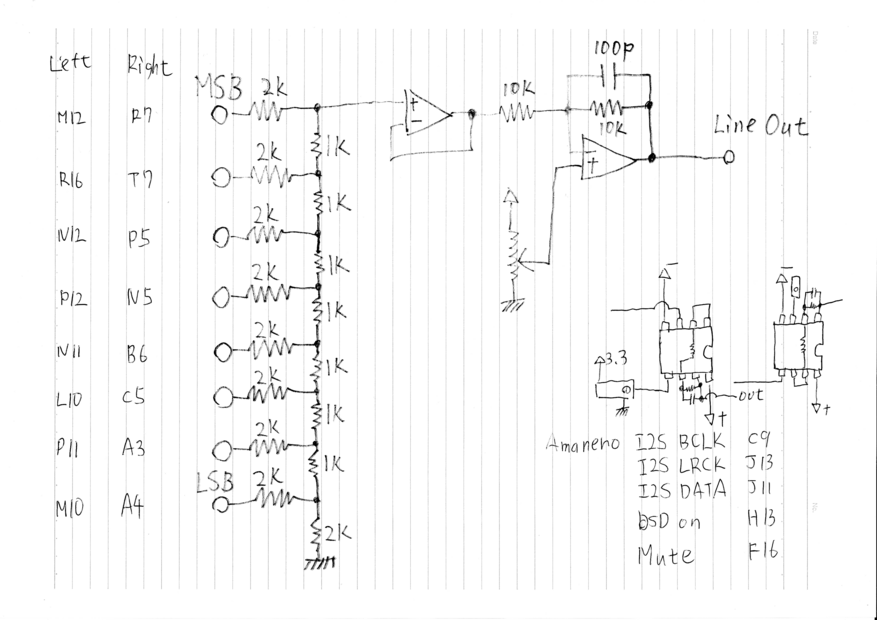 Left Right
MSB 2K
M12 R7
1K
2K
R16 T7
1K
2K
N12 P5
1K
2K
P12 N5
1K
2K
N11 B6
1K
2K
L10 C5
1K
2K
P11 A3
1K
LSB 2K
M10 A4
2K
+
−
10K
100p
10K
−
+
Line Out
−
3.3
out
+
−
+
Amanero I2S BCLK C9
I2S LRCK J13
I2S DATA J11
DSD on H13
Mute F16